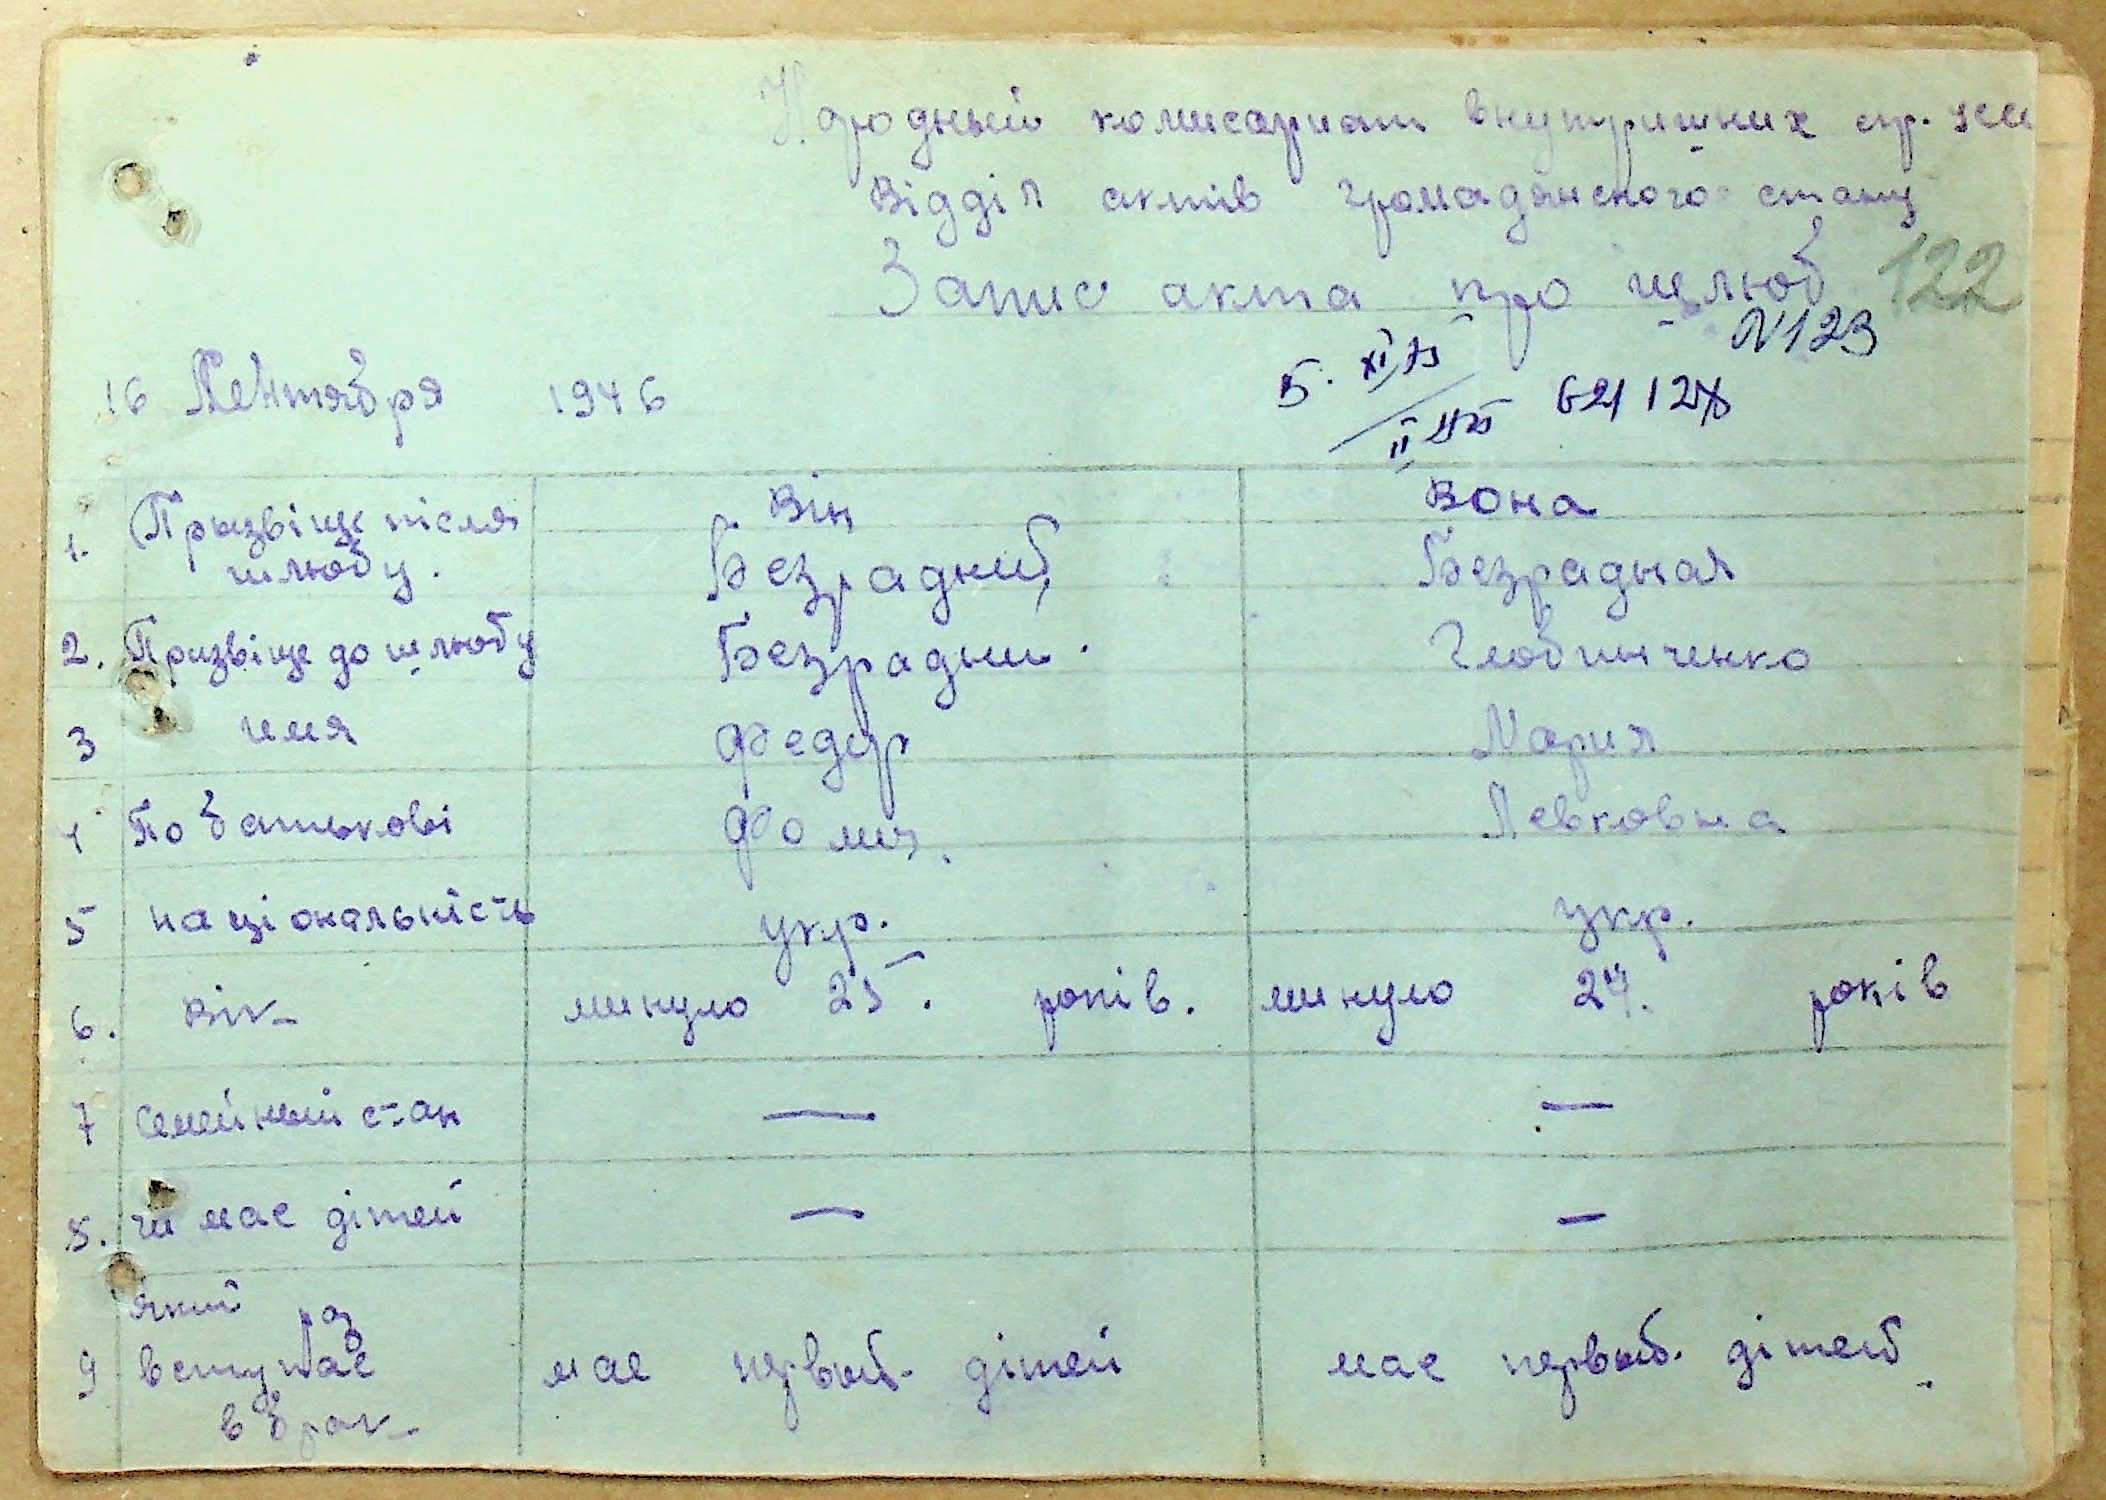 Народный комисариат внутришних спр. УССР
Відділ актів громадянского стану
Запис акта про шлюб 122
N123
16 Сентября 1946
5. XI 621 128
Він Вона
1. Призвіще після Безрадний Безрадная
шлюбу.
2. Призвіще до шлюбу Безрадний. Глобинченко
3 имя Федор Мария
4 По батькові Фомич. Левковна
5 національність укр. укр.
6. вік минуло 25. років. минуло 24. років
7 семейный стан — —
8. чи мае дітей — —
який раз
9 вступае мае первый дітей мае первый дітей
в брак